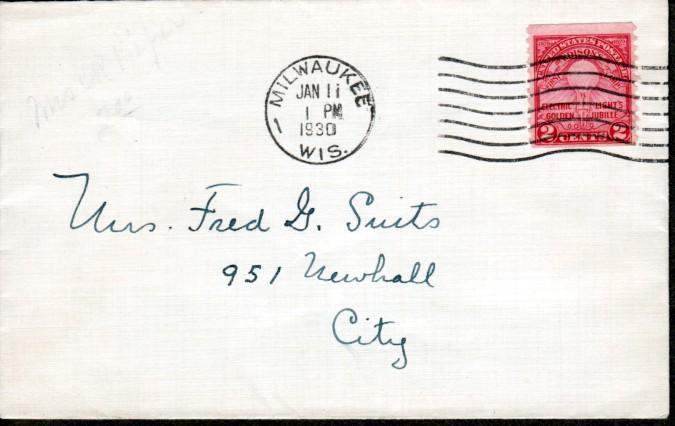 Mrs
MILWAUKEE
JAN 11
1 PM
1930
WIS.
UNITED STATES POSTAGE
EDISON'S
ELECTRIC LIGHT'S
GOLDEN JUBILEE
2 CENTS 2
Mrs. Fred G. Suits
951 Newhall
City